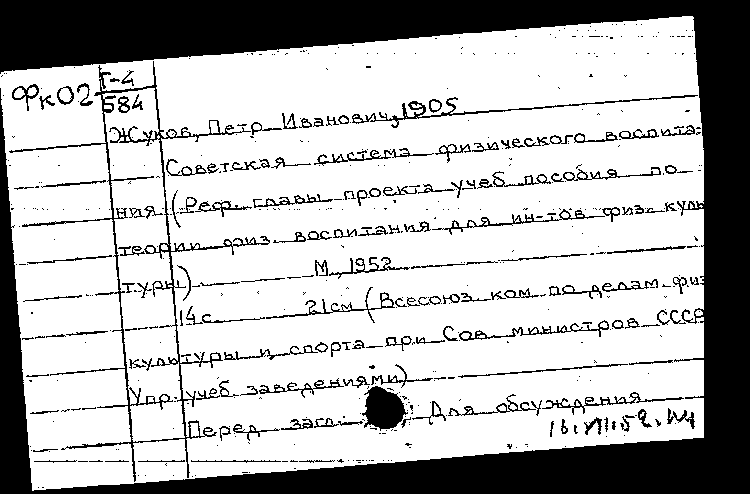 ФкО2 Г-4
584
Жуков, Петр Иванович, 1905
Советская система физического воспита-
ния (Реф. главы проекта учеб. пособия по
теории физ. воспитания для ин-тов физ. куль
туры). М., 1952
14 с. 21 см (Всесоюз. ком. по делам физ
культуры и спорта при Сов. министров СССР
Упр. учеб. заведениями)
Перед загл.: Для обсуждения